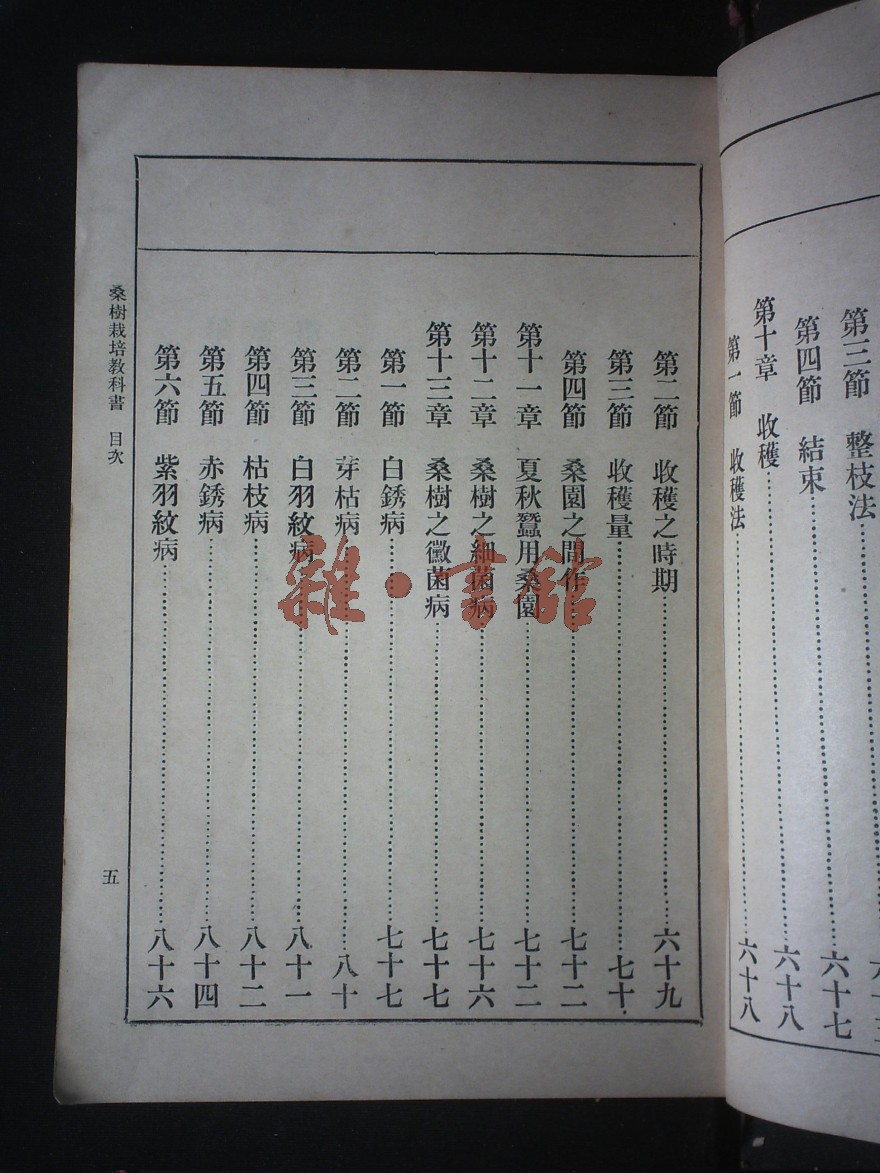 第三節　整枝法
第四節　結束……六十七
第十章　收穫……六十八
第一節　收穫法……六十八
第二節　收穫之時期……六十九
第三節　收穫量……七十
第四節　桑園之間作……七十二
第十一章　夏秋蠶用桑園……七十二
第十二章　桑樹之細菌病……七十六
第十三章　桑樹之黴菌病……七十七
第一節　白銹病……七十七
第二節　芽枯病……八十
第三節　白羽紋病……八十一
第四節　枯枝病……八十二
第五節　赤銹病……八十四
第六節　紫羽紋病……八十六
桑樹栽培教科書　目次
五
雜·書館